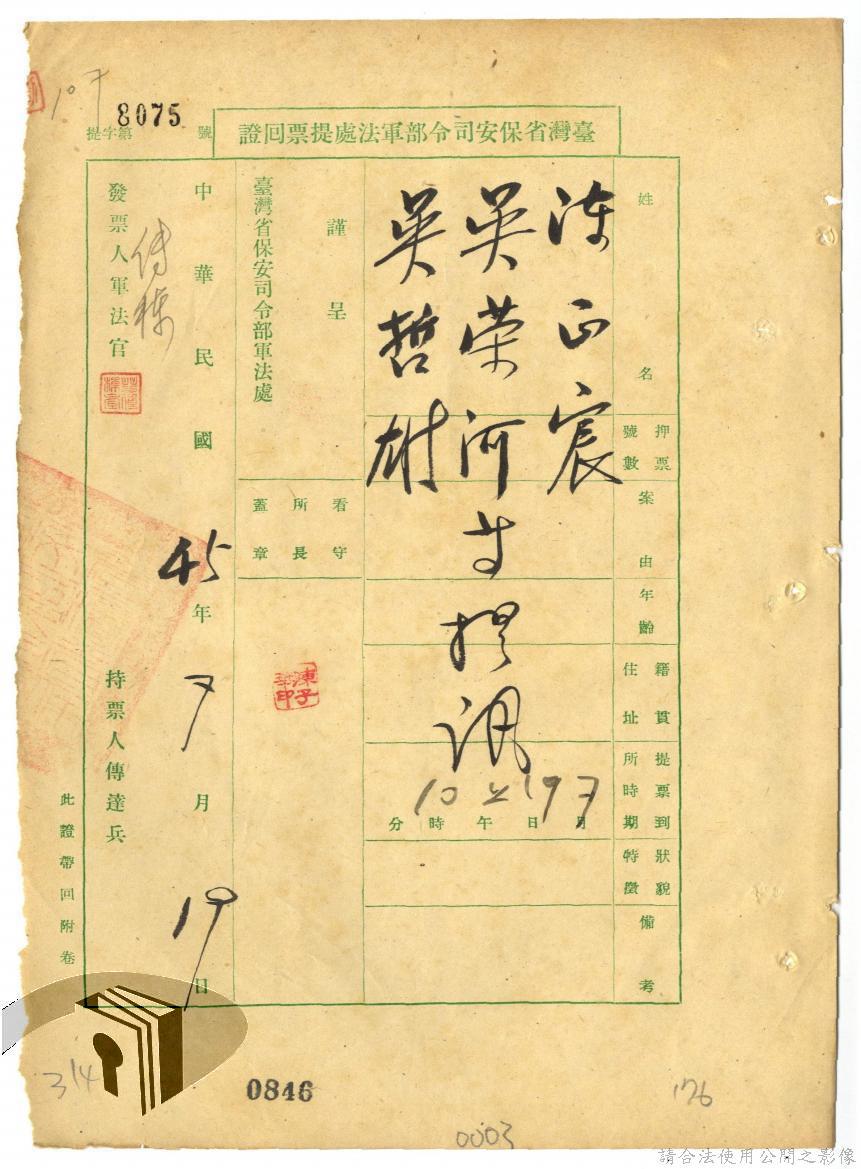 8075
提字第 號
臺灣省保安司令部軍法處提票回證
姓名
押票號數
案由
年齡
籍貫住址
提票到所時期
狀貌特徵
備考
正宸
吳荣河等提訊
吳哲雄
7月19日上午10時 分
謹呈
臺灣省保安司令部軍法處
看守所長蓋章
中華民國45年7月19日
發票人軍法官
持票人傳達兵
此證帶回附卷
314
0846
0003
176
請合法使用公開之影像